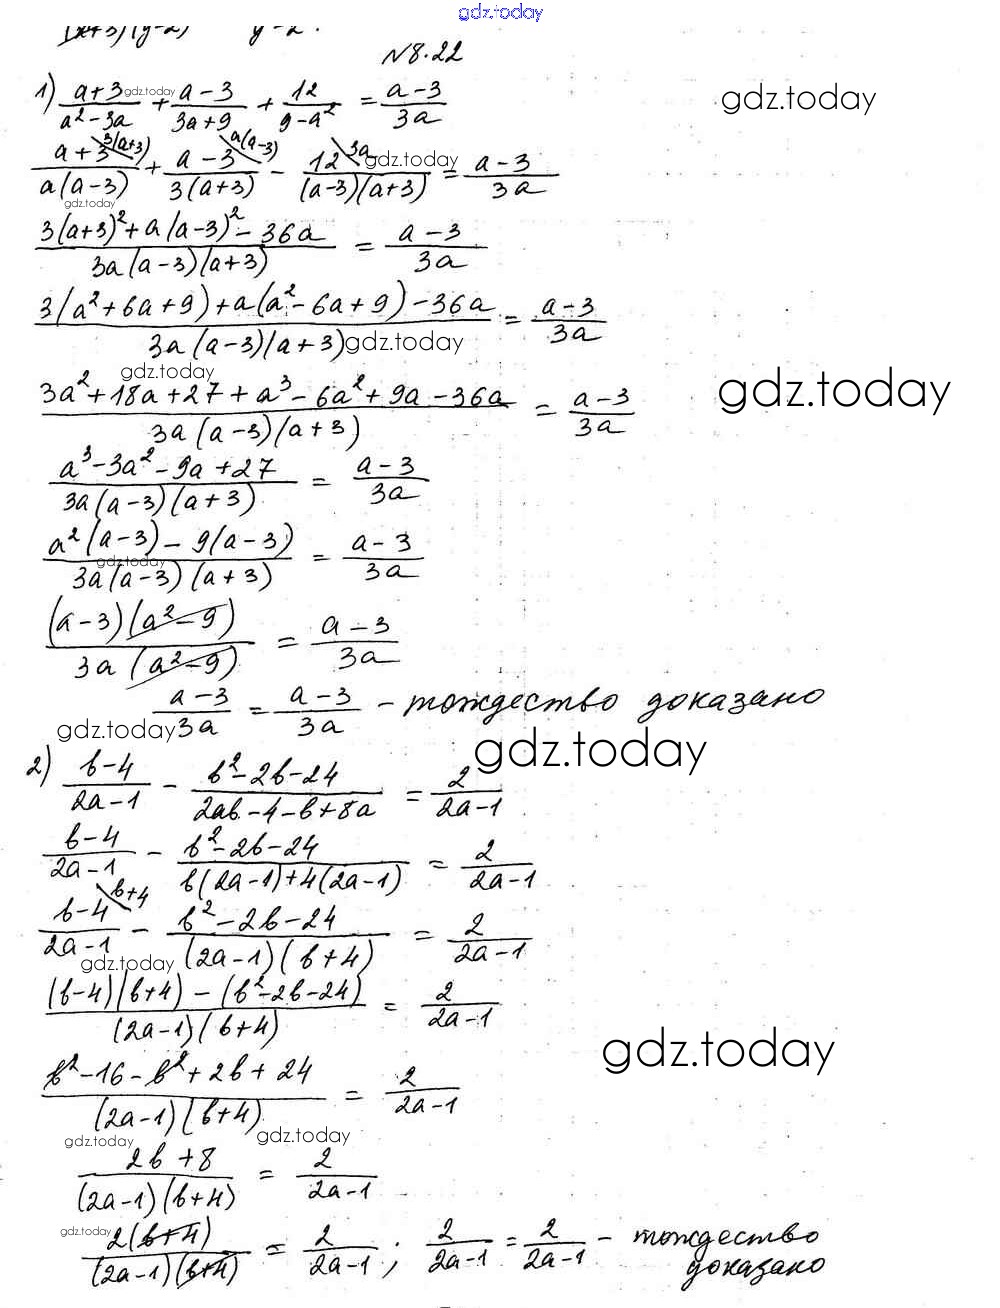 gdz.today
(x+3)(y-2) y-2.
N8.22
1) (a+3)/(a²-3a) + (a-3)/(3a+9) + 12/(9-a²) = (a-3)/(3a) gdz.today gdz.today
(a+3)/(a(a-3)) 3(a+3) + (a-3)/(3(a+3)) a(a-3) - 12/((a-3)(a+3)) 3a = (a-3)/(3a) gdz.today
gdz.today
(3(a+3)²+a(a-3)²-36a)/(3a(a-3)(a+3)) = (a-3)/(3a)
(3(a²+6a+9)+a(a²-6a+9)-36a)/(3a(a-3)(a+3)) = (a-3)/(3a) gdz.today
gdz.today
(3a²+18a+27+a³-6a²+9a-36a)/(3a(a-3)(a+3)) = (a-3)/(3a) gdz.today
(a³-3a²-9a+27)/(3a(a-3)(a+3)) = (a-3)/(3a)
(a²(a-3)-9(a-3))/(3a(a-3)(a+3)) = (a-3)/(3a) gdz.today
((a-3)(a²-9))/(3a(a²-9)) = (a-3)/(3a)
(a-3)/(3a) = (a-3)/(3a) - тождество доказано
gdz.today gdz.today
2) (b-4)/(2a-1) - (b²-2b-24)/(2ab-4-b+8a) = 2/(2a-1)
(b-4)/(2a-1) - (b²-2b-24)/(b(2a-1)+4(2a-1)) = 2/(2a-1)
(b-4)/(2a-1) b+4 - (b²-2b-24)/((2a-1)(b+4)) = 2/(2a-1)
gdz.today
((b-4)(b+4)-(b²-2b-24))/((2a-1)(b+4)) = 2/(2a-1)
gdz.today
(b²-16-b²+2b+24)/((2a-1)(b+4)) = 2/(2a-1)
gdz.today gdz.today
(2b+8)/((2a-1)(b+4)) = 2/(2a-1)
gdz.today (2(b+4))/((2a-1)(b+4)) = 2/(2a-1); 2/(2a-1) = 2/(2a-1) - тождество
доказано